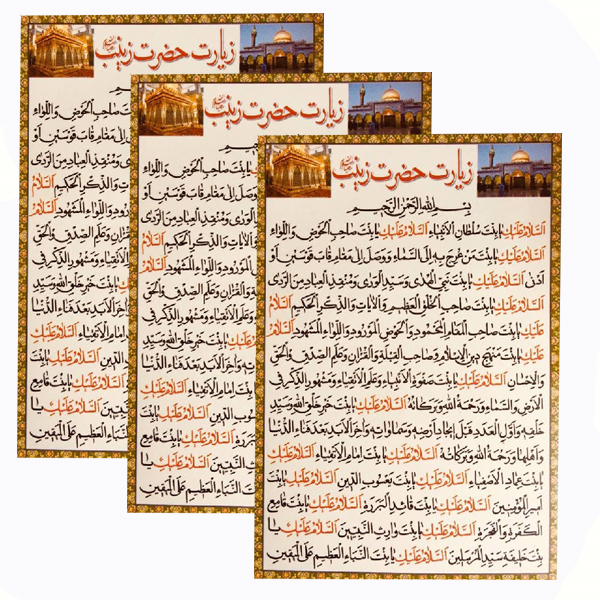 زیارت حضرت زینب
زیارت حضرت زینب
زیارت حضرت زینب
بِسْمِ اللهِ الرَّحْمٰنِ الرَّحیمِ
اَلسَّلامُ عَلَیْكِ یا بِنْتَ سُلْطانِ الْاَنْبِیاءِ اَلسَّلامُ عَلَیْكِ یا بِنْتَ صاحِبِ الْحَوْضِ وَاللِّواءِ
اَلسَّلامُ عَلَیْكِ یا بِنْتَ مَنْ عُرِجَ بِهِ اِلَى السَّماءِ وَوَصَلَ اِلى مَقامِ قابَ قَوْسَیْنِ اَوْ
اَدْنى اَلسَّلامُ عَلَیْكِ یا بِنْتَ نَبِیِّ الْهُدى وَسَیِّدِ الْوَرى وَمُنْقِذِ الْعِبادِ مِنَ الرَّدى
اَلسَّلامُ عَلَیْكِ یا بِنْتَ صاحِبِ الْخُلُقِ الْعَظیمِ وَالْایاتِ وَالذِّكْرِ الْحَكیمِ اَلسَّلامُ
عَلَیْكِ یا بِنْتَ صاحِبِ الْمَقامِ الْمَحْمُودِ وَالْحَوْضِ الْمَوْرُودِ وَاللِّواءِ الْمَشْهُودِ اَلسَّلامُ
عَلَیْكِ یا بِنْتَ مَنْهَجِ دینِ الْاِسْلامِ وَصاحِبِ الْقِبْلَةِ وَالْقُرْانِ وَعَلَمِ الصِّدْقِ وَالْحَقِّ
وَالْاِحْسانِ اَلسَّلامُ عَلَیْكِ یا بِنْتَ صَفْوَةِ الْاَنْبِیاءِ وَعَلَمِ الْاَتْقِیاءِ وَمَشْهُورِ الذِّكْرِ فِی
الْاَرْضِ وَالسَّماءِ وَرَحْمَةُ اللهِ وَبَرَكاتُهُ اَلسَّلامُ عَلَیْكِ یا بِنْتَ خَیْرِ خَلْقِ اللهِ وَسَیِّدِ
خَلْقِهِ وَاَوَّلِ الْعَدَدِ قَبْلَ ایجادِ اَرْضِهِ وَسَماواتِهِ وَاخِرِ الْاَبَدِ بَعْدَ فَناءِ الدُّنْیا
وَاَهْلِها وَرَحْمَةُ اللهِ وَبَرَكاتُهُ اَلسَّلامُ عَلَیْكِ یا بِنْتَ اِمامِ الْاَتْقِیاءِ اَلسَّلامُ عَلَیْكِ یا
بِنْتَ عِمادِ الْاَصْفِیاءِ اَلسَّلامُ عَلَیْكِ یا بِنْتَ یَعْسُوبِ الدّینِ اَلسَّلامُ عَلَیْكِ یا بِنْتَ
اَمیرِ الْمُؤْمِنینَ اَلسَّلامُ عَلَیْكِ یا بِنْتَ قائِدِ الْبَرَرَةِ اَلسَّلامُ عَلَیْكِ یا بِنْتَ قامِعِ
الْكَفَرَةِ وَالْفَجَرَةِ اَلسَّلامُ عَلَیْكِ یا بِنْتَ وارِثِ النَّبِیّینَ اَلسَّلامُ عَلَیْكِ یا
بِنْتَ خَلیفَةِ سَیِّدِ الْمُرْسَلینَ اَلسَّلامُ عَلَیْكِ یا بِنْتَ النَّبَاءِ الْعَظیمِ عَلَى الْیَقینِ